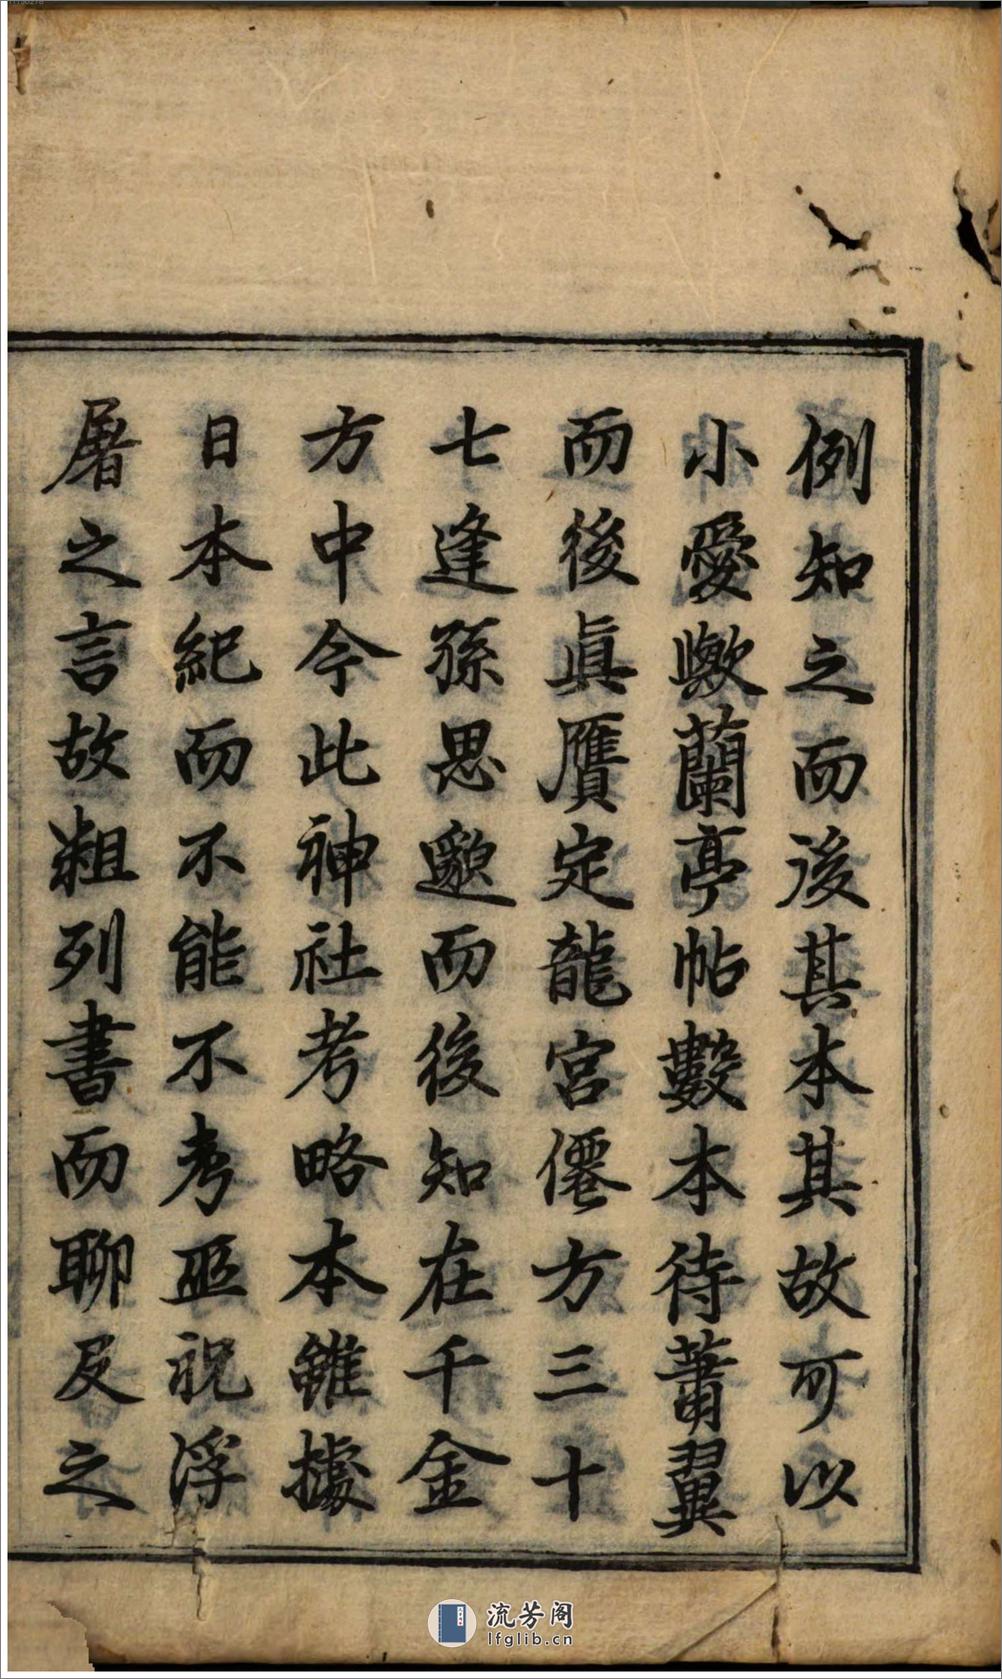 例知之而後其本其故可以
小愛歟蘭亭帖數本待蕭翼
而後眞贋定龍宮僊方三十
七逢孫思邈而後知在千金
方中今此神社考略本雖據
日本紀而不能不考巫祝浮
屠之言故粗列書而聊及之
流芳阁
lfglib.cn